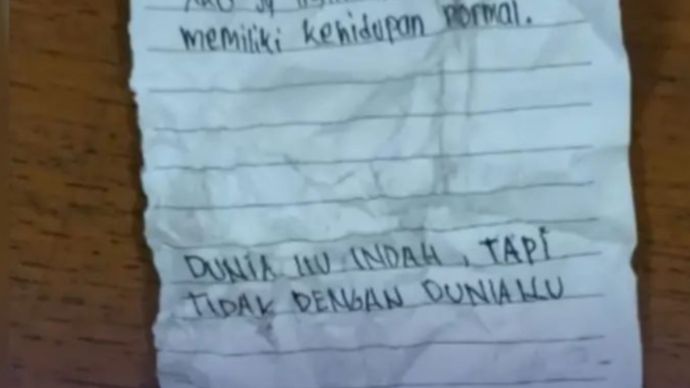 memiliki kehidupan normal.
DUNIA ITU INDAH, TAPI
TIDAK DENGAN DUNIAKU